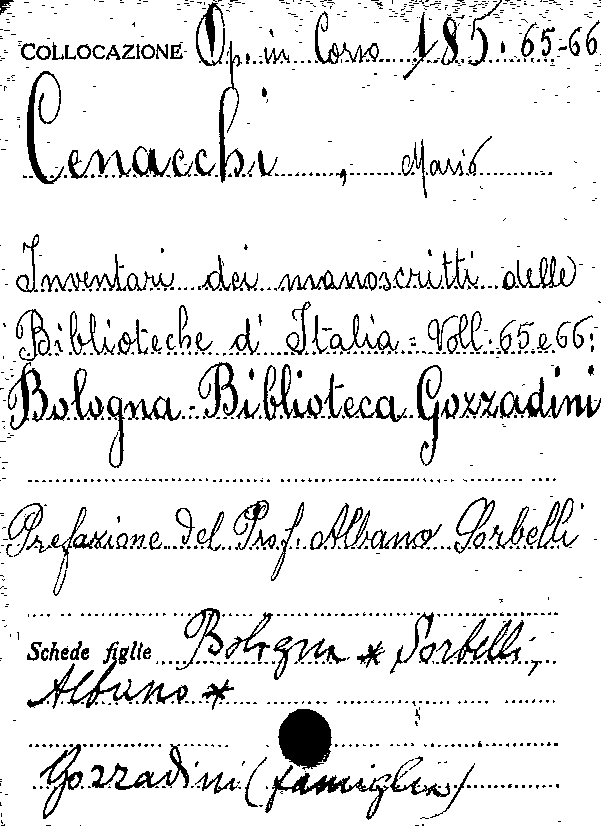 COLLOCAZIONE Op. in Corso 185. 65-66
Cenacchi, Mario
Inventari dei manoscritti delle
Biblioteche d' Italia = Voll. 65 e 66:
Bologna - Biblioteca Gozzadini
Prefazione del Prof. Albano Sorbelli
Schede figlie Bologna * Sorbelli,
Albano *
Gozzadini (famiglia)